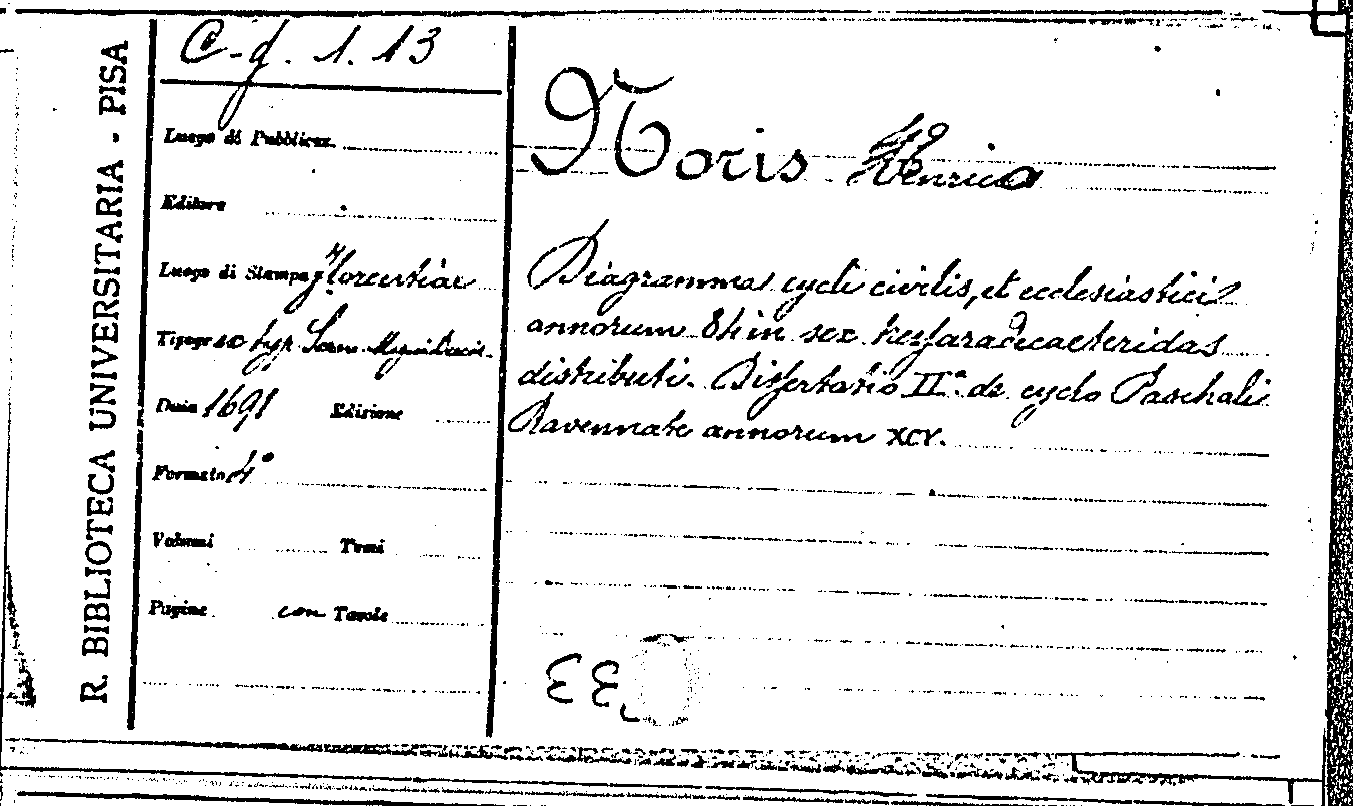 R. BIBLIOTECA UNIVERSITARIA - PISA
C-f. 1. 13
Luogo di Pubblicaz.
Editore
Luogo di Stampa Florentiae
Tipogr. ex typ. Ser.
Data 1691 Edizione
Formato 4°
Volumi Tomi
Pagine con Tavole
Noris Henrico
Diagrammas cycli civilis, et ecclesiastici
annorum 84 in sex hessaradecaeteridas
distributi. Dissertatio IIª. de cyclo Paschali
Ravennate annorum XCV.